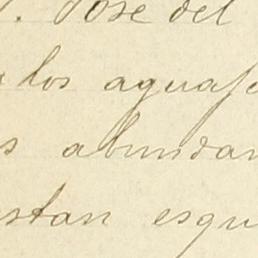 José del
los aguaje
abundan
estan esqu